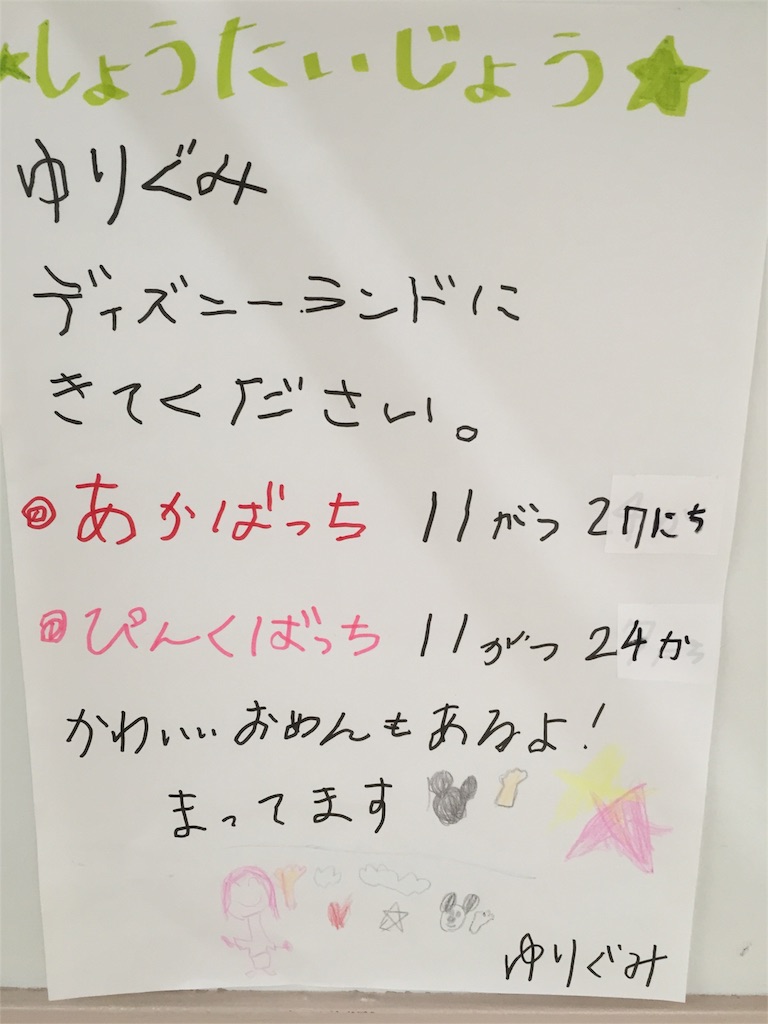 しょうたいじょう
ゆりぐみ
ディズニーランドに
きてください。
あかばっち 11がつ 27にち
ぴんくばっち 11がつ 24か
かわいいおめんもあるよ!
まってます
ゆりぐみ